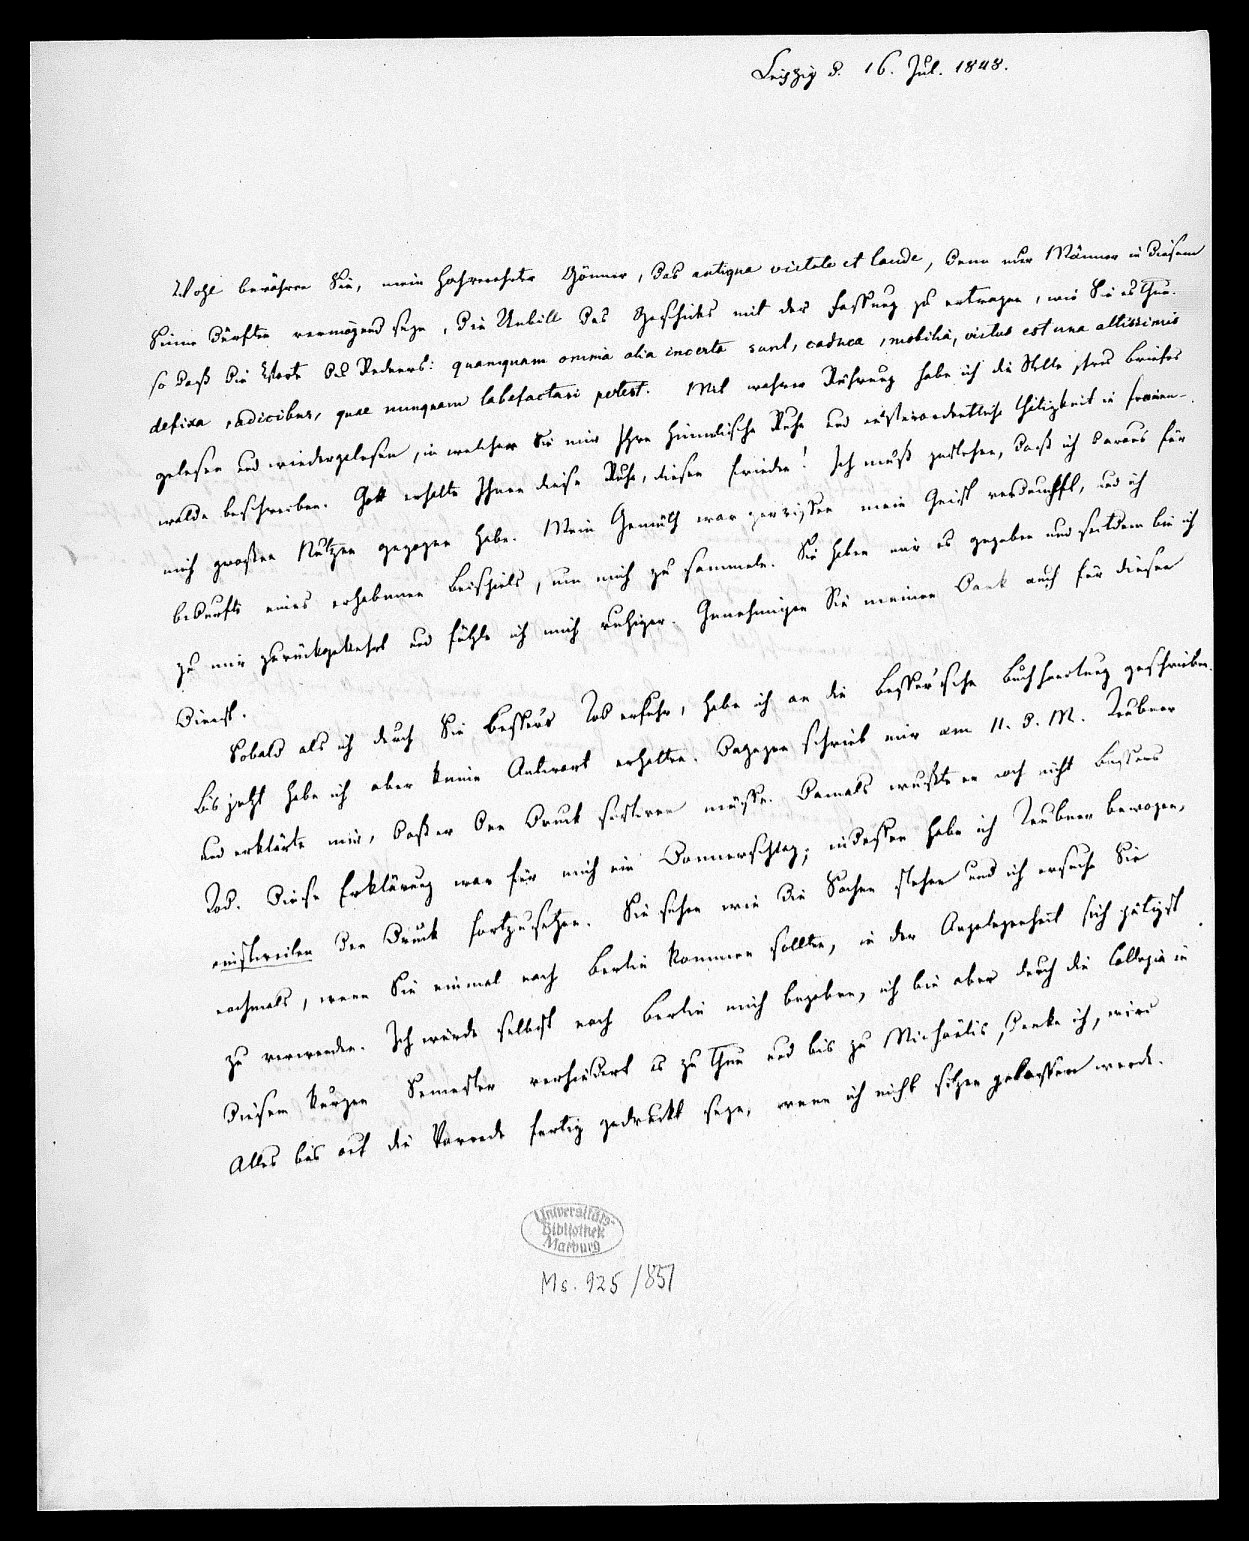 Leipzig d. 16. Jul. 1848.
Wohl bewähren Sie, mein hochverehrter Gönner, das antiqua virtute et laude, denn nur Männer in diesem
Sinne dürften vermögend seyn, die Unbill des Geschicks mit der Fassung zu ertragen, wie Sie es thun.
so daß die Worte des Redners: quamquam omnia alia incerta sunt, caduca, mobilia, virtus est una altissimis
defixa radicibus, quae nunquam labefactari potest. Mit wahrer Rührung habe ich die Stelle Ihres Briefes
gelesen und wiedergelesen, in welcher Sie mir Ihre himmlische Ruhe und außerordentliche Thätigkeit in Frauen-
walde beschreiben. Gott erhalte Ihnen diese Ruhe, diesen Frieden! Ich muß gestehen, daß ich daraus für
mich großen Nutzen gezogen habe. Mein Gemüth war zerrissen mein Geist verdumpft, und ich
bedurfte eines erhabenen Beispiels, um mich zu sammeln. Sie haben mir es gegeben und seitdem bin ich
zu mir zurückgekehrt und fühle ich mich ruhiger. Genehmigen Sie meinen Dank auch für diesen
Dienst.
Sobald als ich durch Sie Bessers Tod erfuhr, habe ich an die Besser'sche Buchhandlung geschrieben.
Bis jetzt habe ich aber keine Antwort erhalten. Dagegen schrieb mir am 11. d. M. Teubner
und erklärte mir, daß er den Druck sistiren müsse. Damals wußte er noch nicht Bessers
Tod. Diese Erklärung war für mich ein Donnerschlag; indessen habe ich Teubner bewogen,
einstweilen den Druck fortzusetzen. Sie sehen wie die Sachen stehen und ich ersuche Sie
nochmals, wenn Sie einmal nach Berlin kommen sollten, in der Angelegenheit sich gütigst
zu verwenden. Ich würde selbst nach Berlin mich begeben, ich bin aber durch die Collegia in
diesem kurzen Semester verhindert es zu thun und bis zu Michaelis, denke ich, wird
Alles bis auf die Vorrede fertig gedruckt seyn, wenn ich nicht sitzen gelassen werde.
Universitäts-
Bibliothek
Marburg
Ms. 925/851